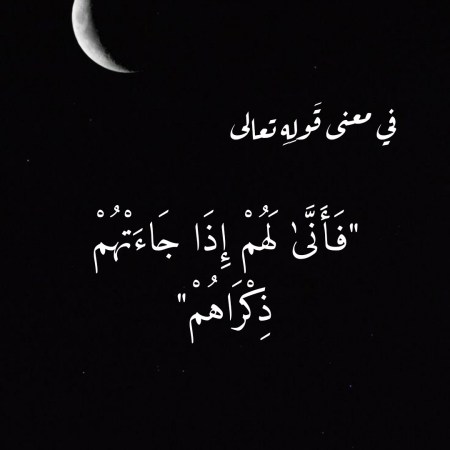 في معنى قَولِه تعالى
"فَأَنَّىٰ لَهُمْ إِذَا جَاءَتْهُمْ
ذِكْرَاهُمْ"